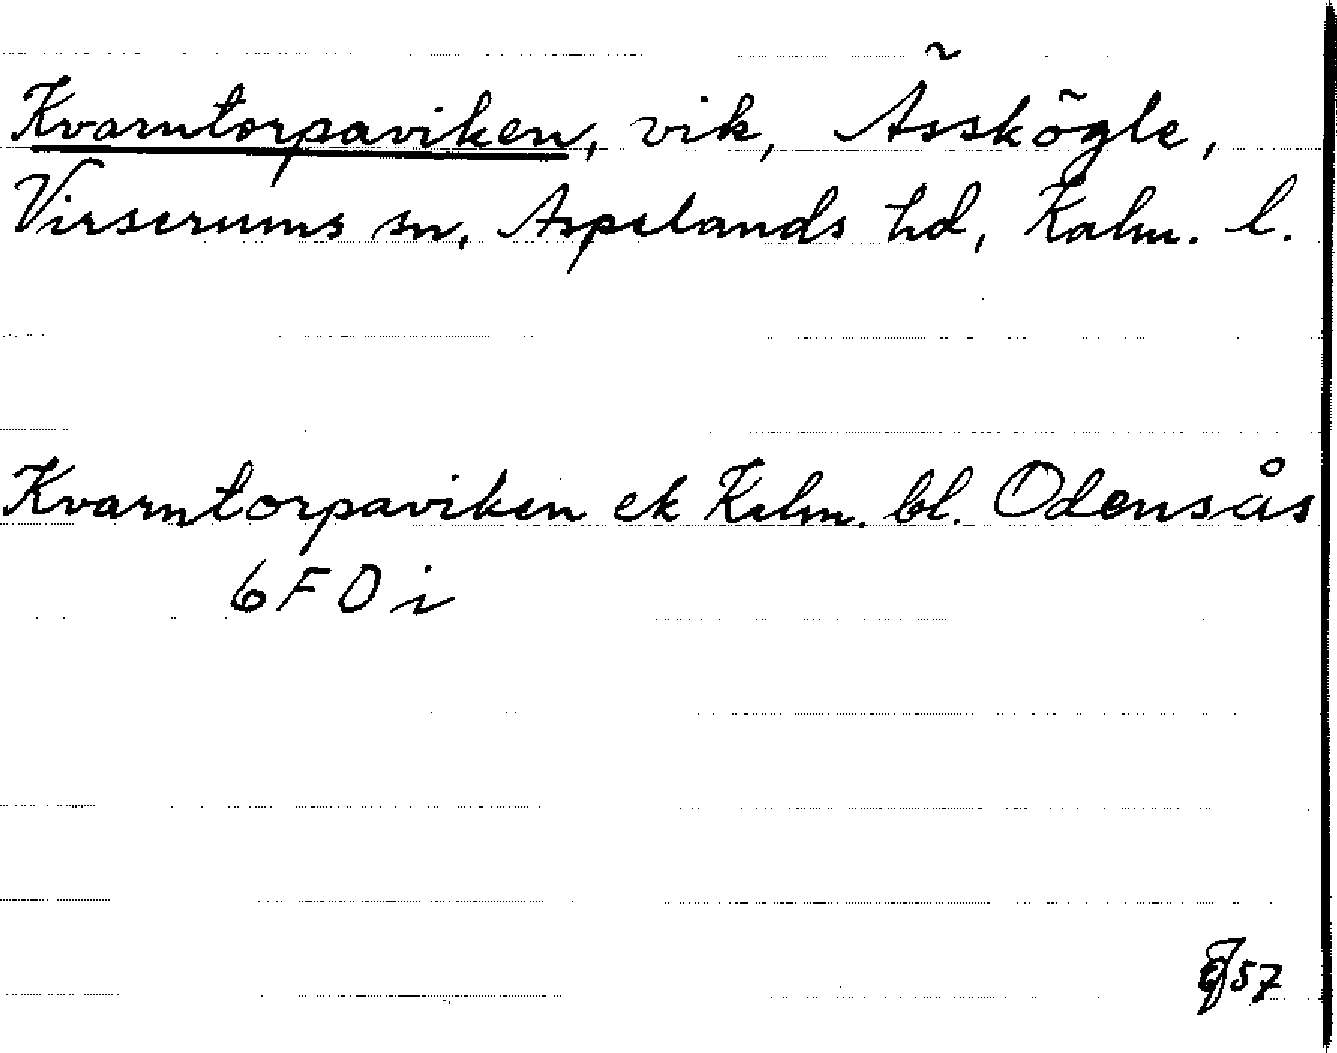 Kvarntorpaviken, vik, Ässkögle,
Virserums sn, Aspelands hd, Kalm. l.
Kvarntorpaviken ek Kalm. bl. Odensås
6 F 0 i
57